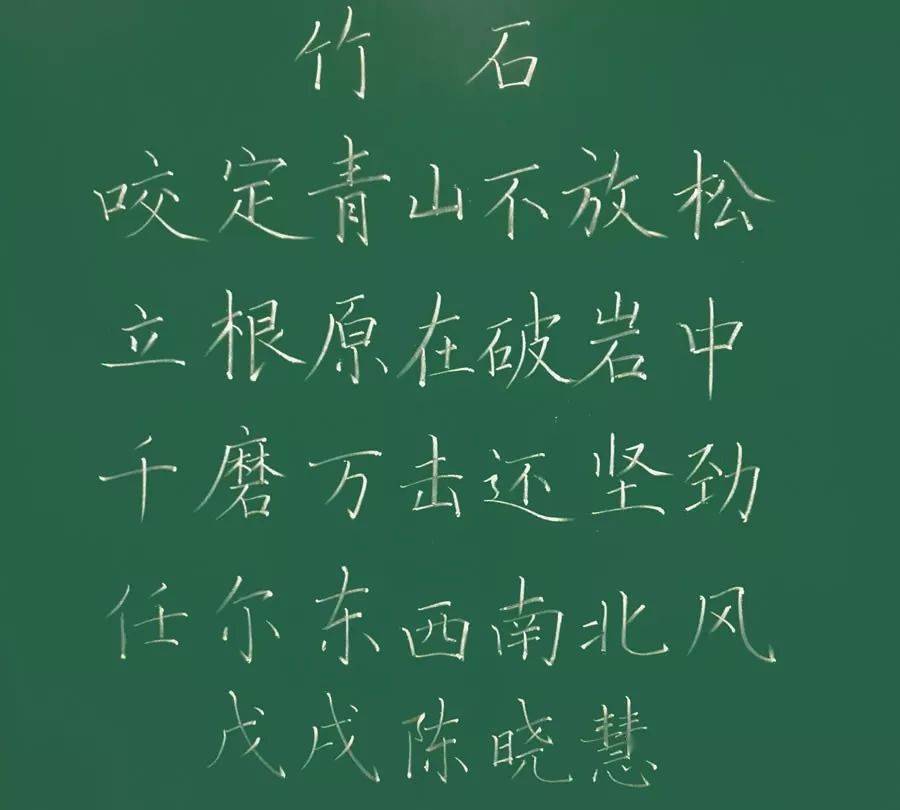 竹石
咬定青山不放松
立根原在破岩中
千磨万击还坚劲
任尔东西南北风
戊戌陈晓慧